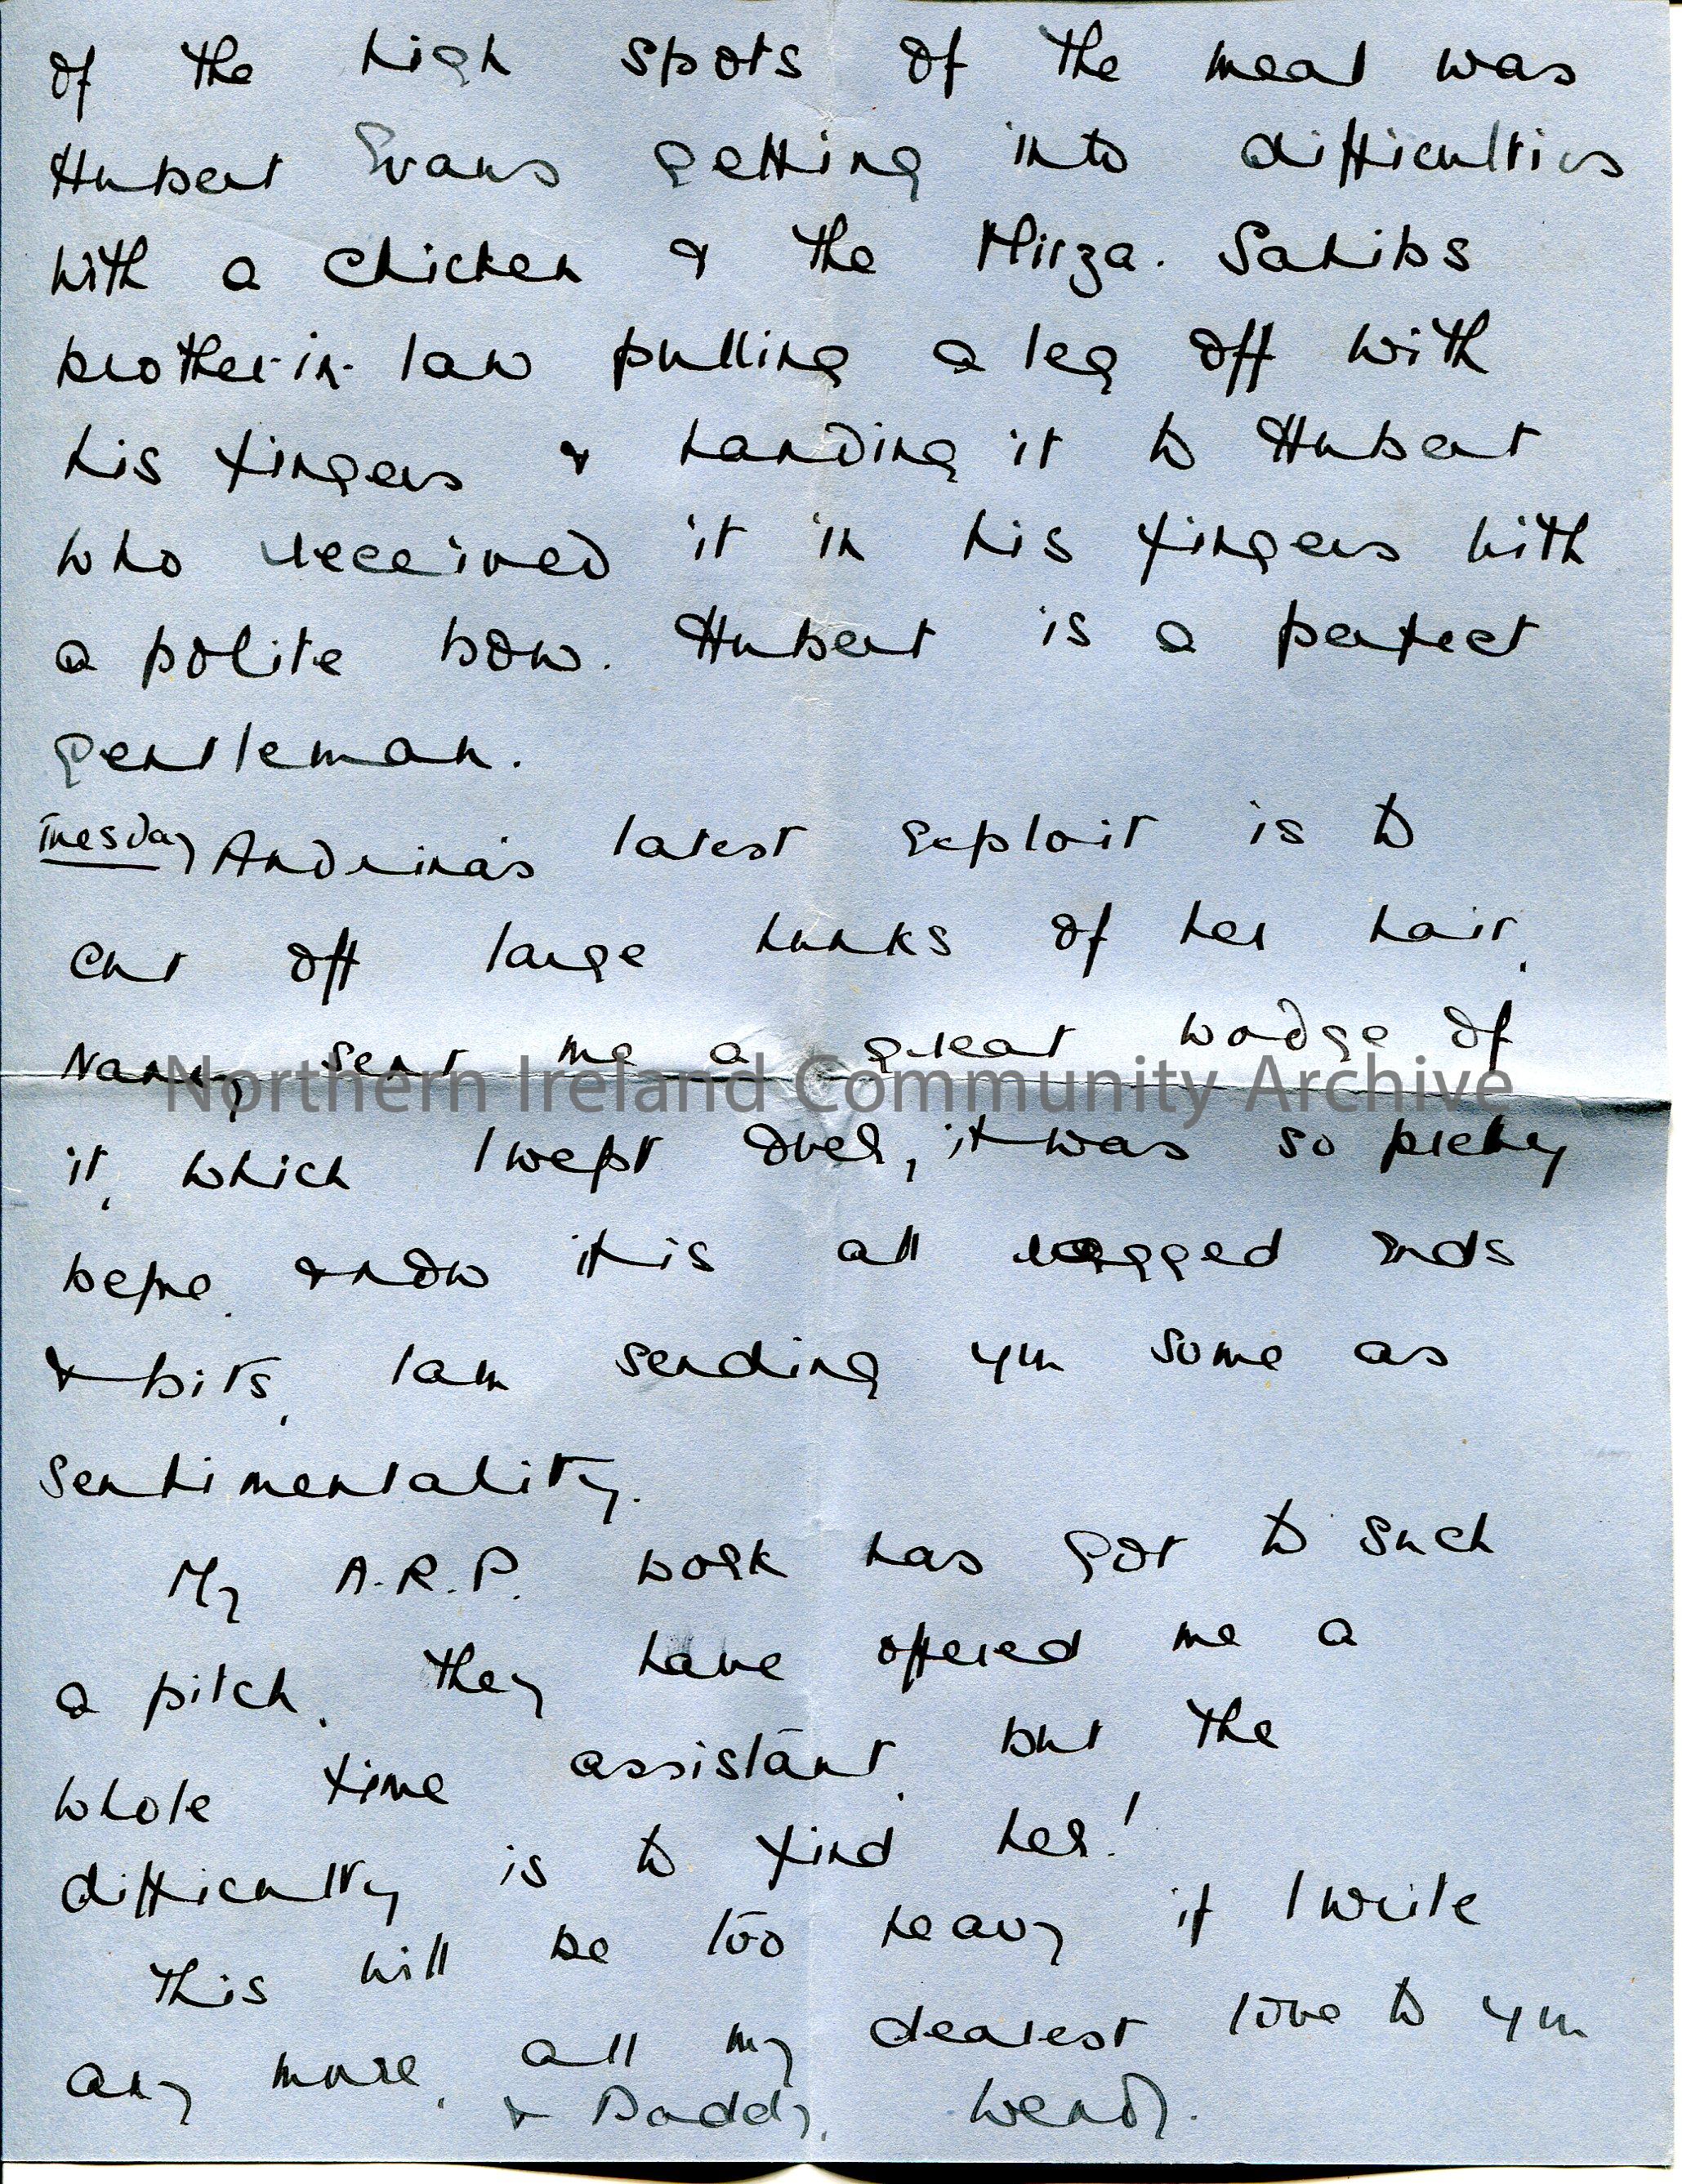 of the high spots of the meal was
Hubert Evans getting into difficulties
with a chicken & the Mirza. Sahibs
brother-in-law pulling a leg off with
his fingers & handing it to Hubert
who received it in his fingers with
a polite bow. Hubert is a perfect
gentleman.
Tuesday Andrina's latest exploit is to
cut off large hunks of her hair,
Nanny sent me a great wodge of
it, which I wept over, it was so pretty
before, & now it is all ragged ends
& bits, I am sending you some as
sentimentality.
My A.R.P. work has got to such
a pitch, they have offered me a
whole time assistant, but the
difficulty is to find her!
This will be too heavy if I write
any more, all my dearest love to you
& Daddy, Wendy.
Northern Ireland Community Archive